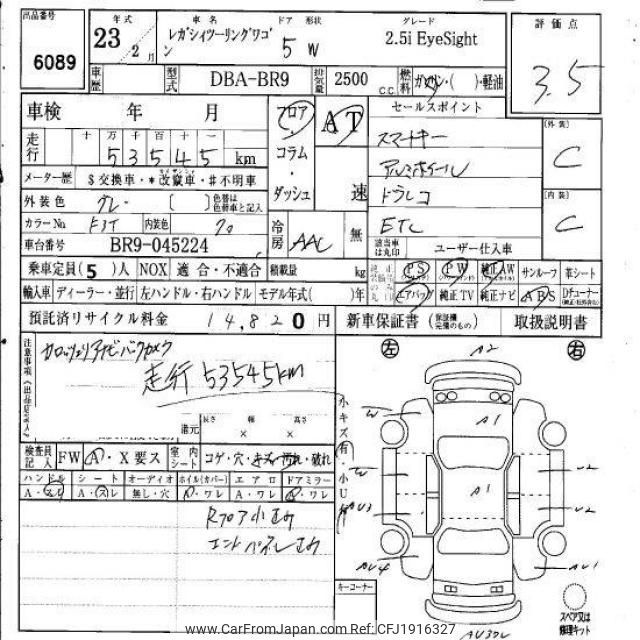 出品番号
6089
年式
23年 2月
車名
レガシィツーリングワゴン
ドア 形状
5 W
グレード
2.5i EyeSight
評価点
3.5
車歴
型式
DBA-BR9
排気量
2500 C.C.
燃料
ガソリン・( )・軽油
車検 年 月
フロア
コラム・ダッシュ
AT
速
セールスポイント
スマートキー
アルミホイール
ドラレコ
ETC
[外装]
C
[内装]
C
走行
十 万 千 百 十 一
53545 km
メーター歴
$交換車・*改竄車・#不明車
外装色
グレー
[ ]
色替は色替車と記入
カラーNo
内装色
クロ
冷房
AAC
無
該当車は丸印
ユーザー仕入車
車台番号
BR9-045224
乗車定員(5)人
NOX
適合・不適合
積載量
kg
PS
PW
純正AW
サンルーフ
革シート
輸入車
ディーラー・並行
左ハンドル・右ハンドル
モデル年式( )年
エアバッグ
純正TV
純正ナビ
ABS
Dチューナー
預託済リサイクル料金
14,820円
新車保証書
(保証欄完備のもの)
取扱説明書
注意事項(出品店記入)
カロッツェリアナビバックカメラ
走行 53545km
還元
長さ 幅 高さ
× ×
検査員記入
FW
A・X要ス
室内シート
コゲ・穴・キズ・汚れ・破れ
ハンドル
シート
オーディオ
ホイル(カバー)
エアロ
ドアミラー
A・スレ
A・スレ
無し・穴
A・ワレ
A・ワレ
A・ワレ
Rフロア小
エンドパネル
小キズ有・小U有
左
右
A2
W
A1
W
U2
A1
U2
AU3
AU4
AU1
キーコーナー
スペア又は修理キット
www.CarFromJapan.com Ref:CFJ1916327